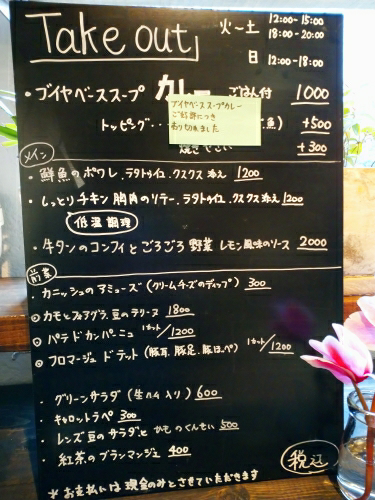 Take out
火〜土 12:00-15:00
18:00-20:00
日 12:00-18:00
・ブイヤベーススープ カレー ごはん付 1000
ブイヤベーススープカレー
ご好評につき
売り切れました
トッピング・・・ 魚) +500
焼きやさい +300
メイン
・鮮魚のポワレ、ラタトゥイユ、クスクス添え 1200
・しっとりチキン 胸肉のソテー、ラタトゥイユ、クスクス添え 1200
低温調理
・牛タンのコンフィとごろごろ野菜 レモン風味のソース 2000
前菜
・カニッシュのアミューズ (クリームチーズのディップ) 300
カモとフォアグラ、豆のテリーヌ 1800
パテドカンパーニュ 1カット/1200
フロマージュ ド テット (豚耳、豚足、豚ほっぺ) 1カット/1200
・グリーンサラダ (生ハム入り) 600
・キャロットラペ 300
・レンズ豆のサラダと かものくんせい 500
・紅茶のブランマンジェ 400
税込
*お支払いは現金のみとさせていただきます